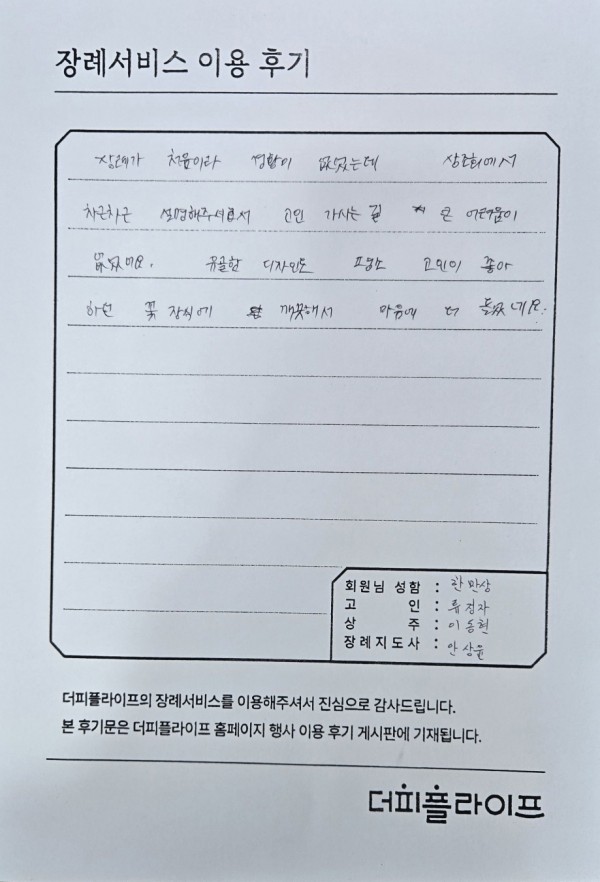 장례서비스 이용 후기
장례가 처음이라 경황이 없었는데 상조회에서
차근차근 설명해주셔서 고인 가시는 길 큰 어려움이
없었네요. 유골함 디자인도 평소 고인이 좋아
하던 꽃 장식에 깨끗해서 마음에 더 들었네요.
회원님 성함 : 한만상
고 인 : 류정자
상 주 : 이동현
장례지도사 : 안상윤
더피플라이프의 장례서비스를 이용해주셔서 진심으로 감사드립니다.
본 후기문은 더피플라이프 홈페이지 행사 이용 후기 게시판에 기재됩니다.
더피플라이프